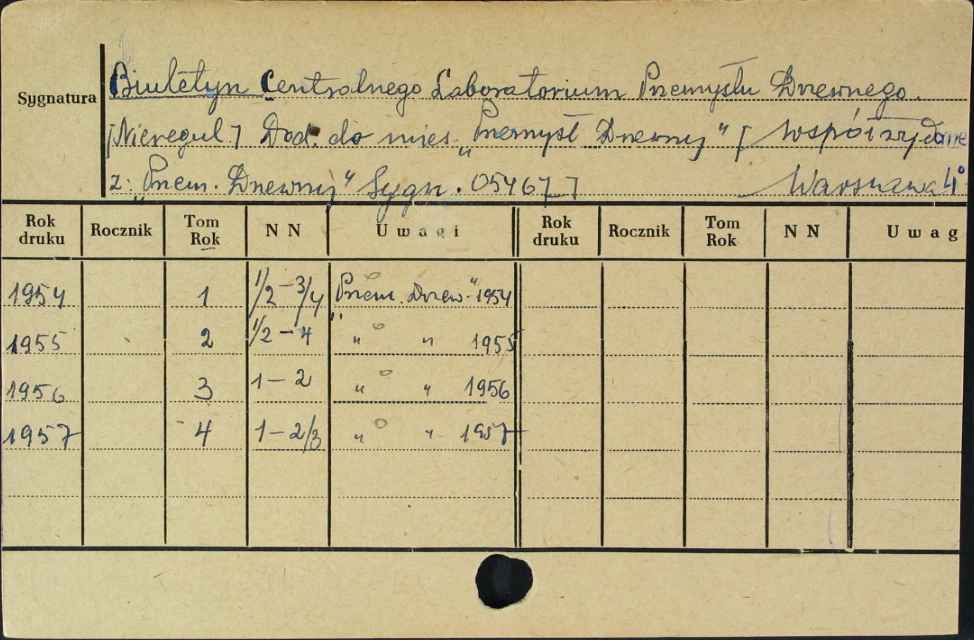 Sygnatura
Biuletyn Centralnego Laboratorium Przemysłu Drzewnego.
[Nieregul] Dod. do mies. „Przemysł Drzewny" [Współwydane
z: „Przem. Drzewnij" Sygn. 05467]
Warszawa 4°
Rok druku Rocznik Tom Rok NN Uwagi Rok druku Rocznik Tom Rok NN Uwag
1954 1 1/2-3/4 „Przem. Drzew." 1954
1955 2 1/2-4 „ „ 1955
1956 3 1-2 „ „ 1956
1957 4 1-2/3 „ „ 1957